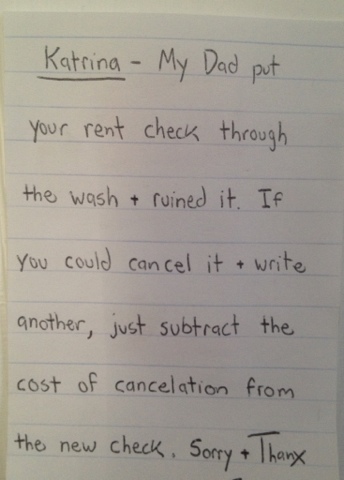 Katrina - My Dad put
your rent check through
the wash + ruined it. If
you could cancel it + write
another, just subtract the
cost of cancelation from
the new check. Sorry + Thanx